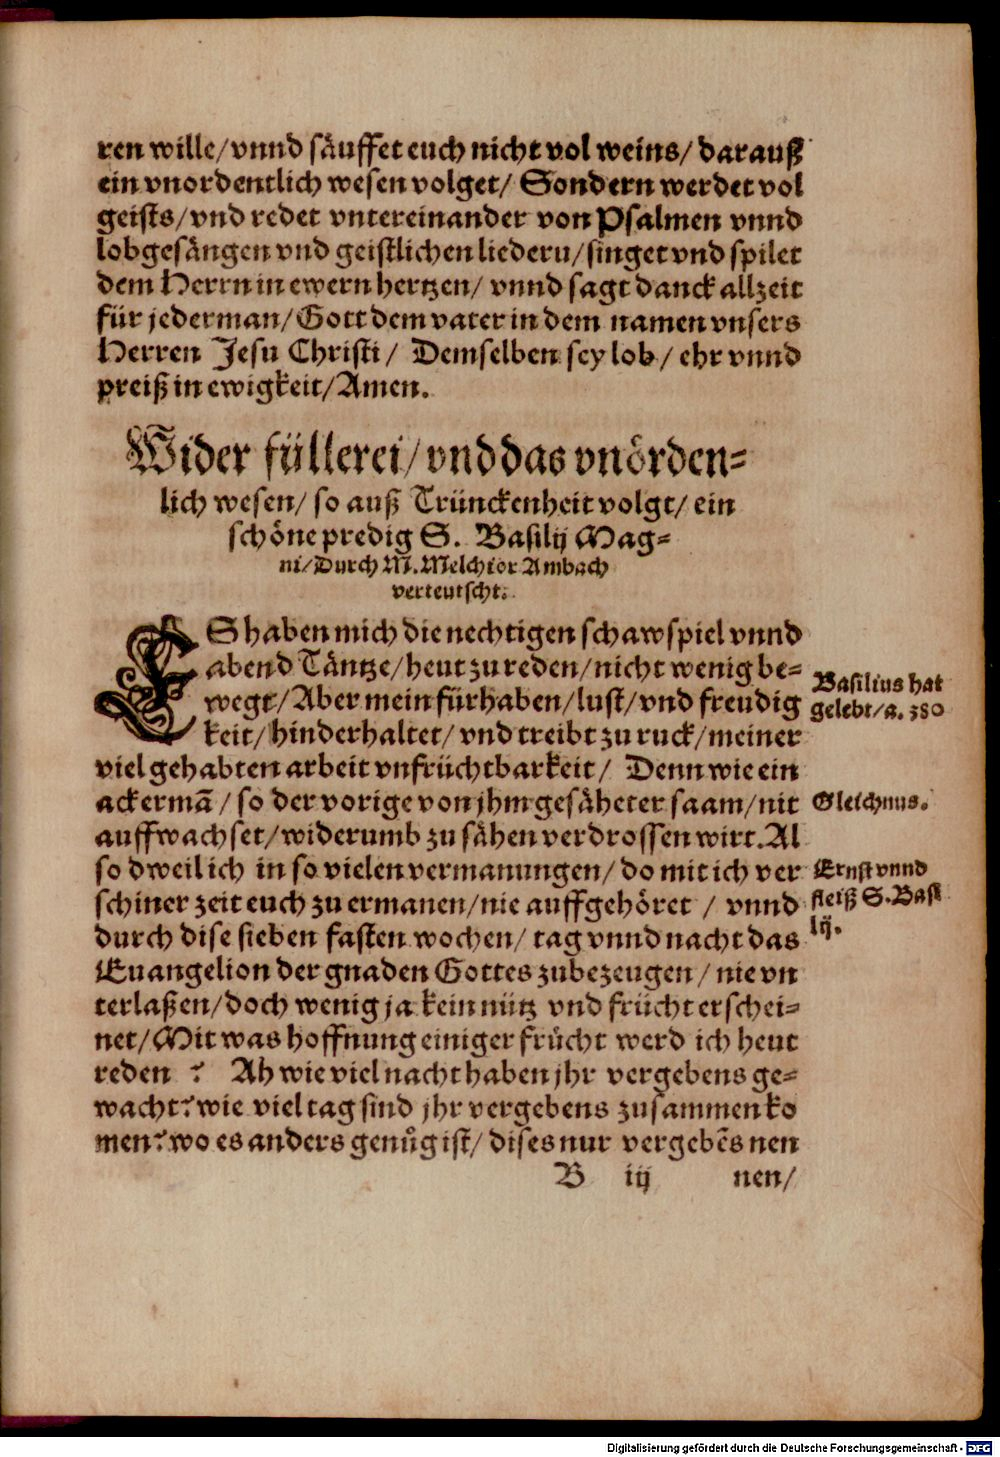 ren wille/vnnd säuffet euch nicht vol weins/ darauß
ein vnordentlich wesen volget/ Sondern werdet vol
geists/vnd redet vntereinander von Psalmen vnnd
lobgesängen vnd geistlichen liederu/singet vnd spilet
dem Herrn in ewern hertzen/ vnnd sagt danck allzeit
für jederman/Gott dem vater in dem namen vnsers
Herren Jesu Christi/ Demselben sey lob/ ehr vnnd
preiß in ewigkeit/Amen.
Wider füllerei/vnd das vnörden-
lich wesen/ so auß Trünckenheit volgt/ ein
schöne predig S. Basilij Mag-
ni/Durch M. Melchior Ambach
verteutscht.
ES haben mich die nechtigen schawspiel vnnd
abend Täntze/heut zu reden/nicht wenig be-
wegt/Aber mein fürhaben/lust/vnd freudig
keit/hinderhaltet/vnd treibt zu ruck/meiner
viel gehabten arbeit vnfrüchtbarkeit/ Denn wie ein
ackermā/so der vorige von jhm gesäheter saam/nit
auffwachset/widerumb zu sähen verdrossen wirt. Al
so dweil ich in so vielen vermanungen/do mit ich ver
schiner zeit euch zu ermanen/nie auffgehöret / vnnd
durch dise sieben fasten wochen/ tag vnnd nacht das
Euangelion der gnaden Gottes zubezeugen/nie vn
terlaßen/doch wenig ja kein nütz vnd frücht erschei-
net/Mit was hoffnung einiger frücht werd ich heut
reden ? Ah wie viel nacht haben jhr vergebens ge-
wacht?wie viel tag sind jhr vergebens zusammen ko
men?wo es anders genůg ist/ dises nur vergebēs nen
B iij nen/
Basilius hat
gelebt/a. 380
Gleichnus.
Ernst vnnd
fleiß S. Basi
lij.
Digitalisierung gefördert durch die Deutsche Forschungsgemeinschaft - DFG